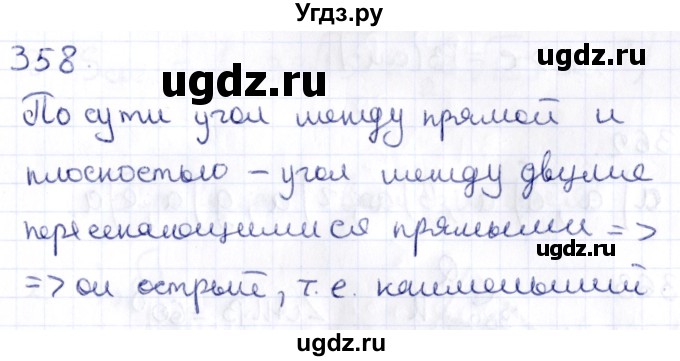 Угдз.ру
358.
ugdz.ru
ugdz.ru
По сути угол между прямой и
плоскостью – угол между двумя
пересекающимися прямыми =>
ugdz.ru
=> он острый, т.е. наименьший
ugdz.ru